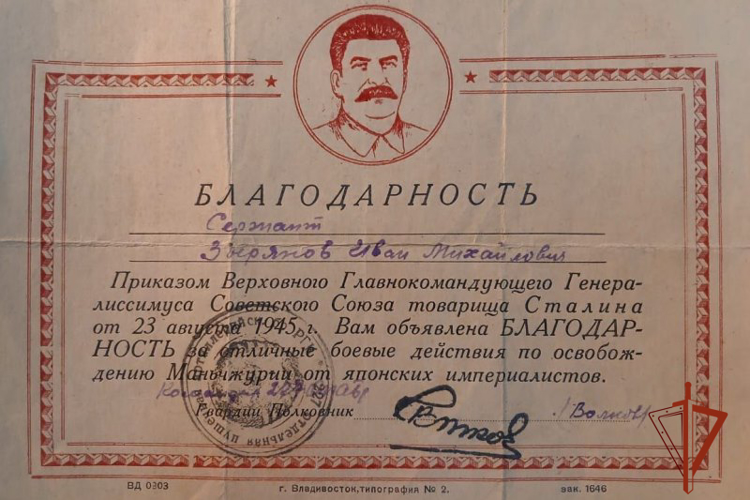 БЛАГОДАРНОСТЬ
Сержант
Зырянов Иван Михайлович
Приказом Верховного Главнокомандующего Генера-
лиссимуса Советского Союза товарища Сталина
от 23 августа 1945 г. Вам объявлена БЛАГОДАР-
НОСТЬ за отличные боевые действия по освобож-
дению Маньчжурии от японских империалистов.
Гвардии Полковник /Волков/
ВД 0303 г. Владивосток, типография № 2. зак. 1646